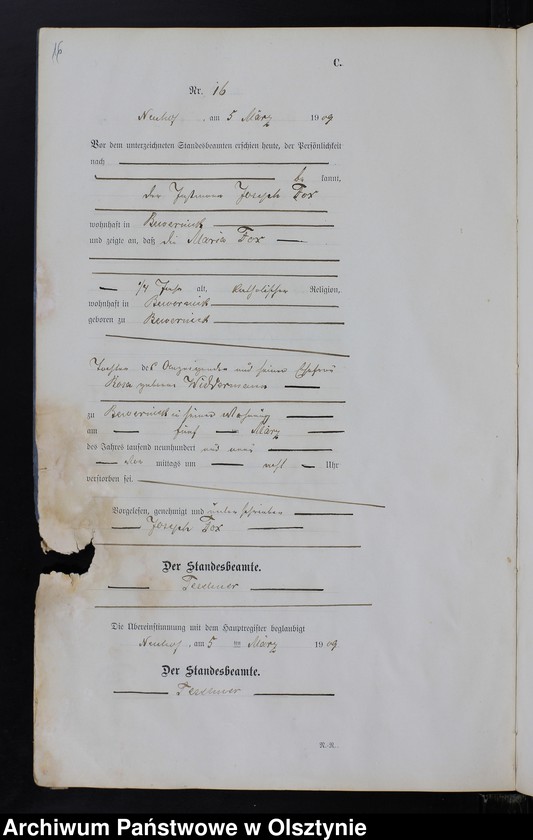 16
C.
Nr. 16
Neuhof, am 5 März 1909
Vor dem unterzeichneten Standesbeamten erschien heute, der Persönlichkeit
nach
be kannt,
der Joseph Fox
wohnhaft in Beiwernick
und zeigte an, daß die Maria Fox
1/4 Jahr alt, katholischer Religion,
wohnhaft in Beiwernick
geboren zu Beiwernick
Tochter des Anzeigenden und seiner Ehefrau
Rosa geborene Widdermann
zu Beiwernick in seiner Wohnung
am fünf März
des Jahres tausend neunhundert und neun
mittags um Uhr
verstorben sei.
Vorgelesen, genehmigt und unterschrieben
Joseph Fox
Der Standesbeamte.
Teschner
Die Übereinstimmung mit dem Hauptregister beglaubigt
Neuhof, am 5 März 1909.
Der Standesbeamte.
Teschner
N.R.
Archiwum Państwowe w Olsztynie